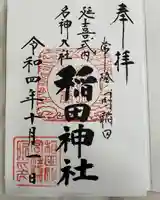 奉拝
常陸国稲田
稲田神社
延喜式内
名神大社
令和四年十月一日